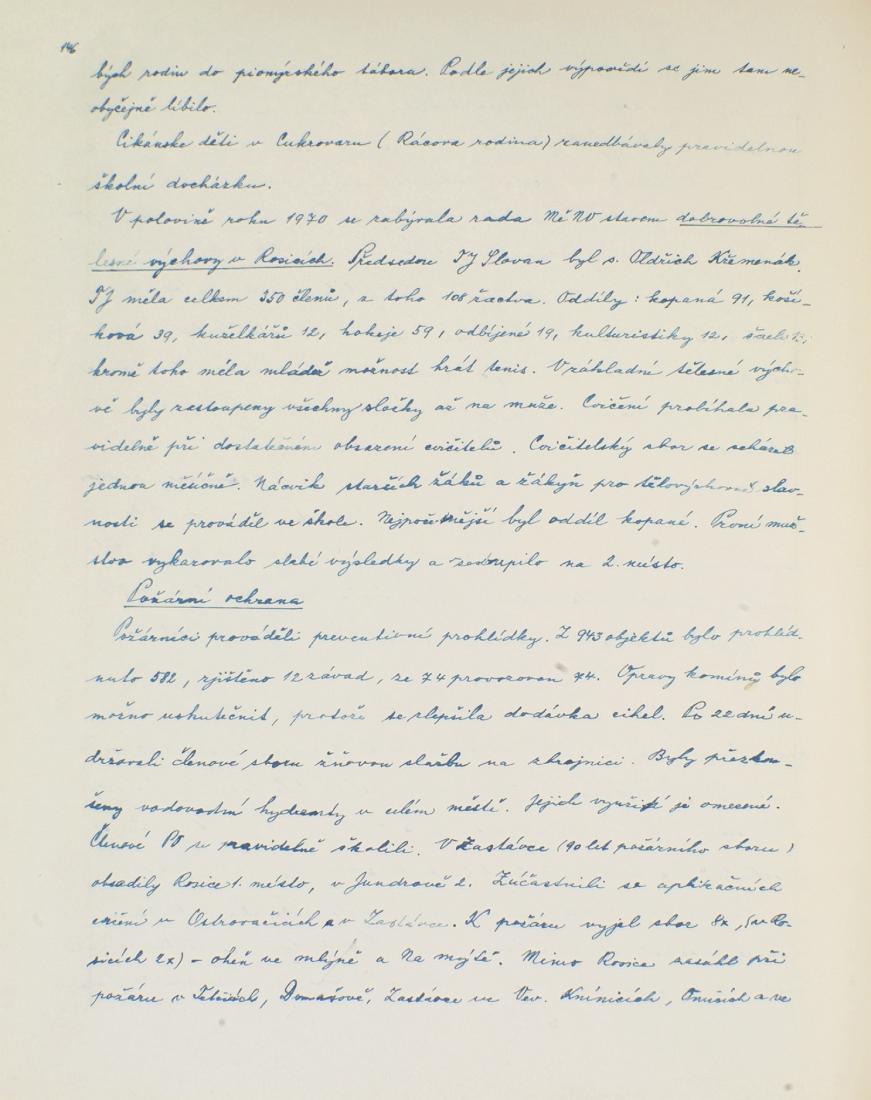 146
bých rodin do pionýrského tábora. Podle jejich výpovědí se jim tam ne-
obyčejně líbilo.
Cikánske děti v Cukrovaru ( Rácova rodina) zanedbávaly pravidelnou
školní docházku.
V polovině roku 1970 se zabývala rada MěNV stavem dobrovolné tě-
lesné výchovy v Rosicích. Předsedou TJ Slovan byl s. Oldřich Křemenák.
TJ měla celkem 350 členů, z toho 108 žactva. Oddíly: kopaná 91, koší-
ková 39, kuželkářů 12, hokeje 59, odbíjené 19, kulturistiky 12, šach 13,
kromě toho měla mládež možnost hrát tenis. V základní tělesné výcho-
vě byly zastoupeny všechny složky až na muže. Cvičení probíhala pra-
videlně při dostatečném obsazení cvičitelů. Cvičitelský sbor se scházel
jednou měsíčně. Nácvik starších žáků a žákyň pro tělovýchovné slav-
nosti se prováděl ve škole. Nejpočetnější byl oddíl kopané. První muž-
stvo vykazovalo slabé výsledky a sestoupilo na 2. místo.
Požární ochrana
Požárníci prováděli preventivní prohlídky. Z 943 objektů bylo prohléd-
nuto 582, zjištěno 12 závad, ze 74 provozoven 74. Opravy komínů bylo
možno uskutečnit, protože se zlepšila dodávka cihel. Po 22 dní u-
držovali členové sboru žňovou službu na zbrojnici. Byly přezkou-
šeny vodovodní hydranty v celém městě. Jejich využití je omezené.
Členové PO se pravidelně školili. V Zastávce (90 let požárního sboru)
obsadily Rosice 1. místo, v Jundrově 2. Zúčastnili se
cvičení v Ostrovačicích a v Zastávce. K požáru vyjel sbor 8x, (v Ro-
sicích 2x) - oheň ve mlýně a Na mýtě. Mimo Rosice zasáhl při
požáru v Tetčicích, Domašově, Zastávce ve Vev. Knínicích, Omicích a ve